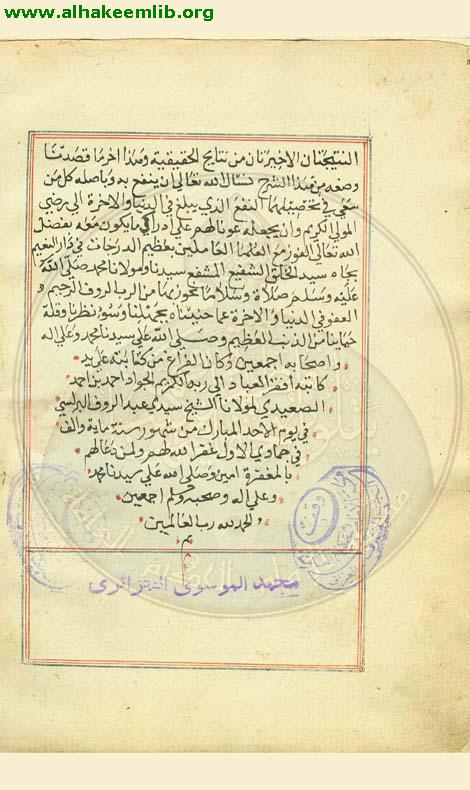 www.alhakeemlib.org
النتيجتان الاخيرتان من نتايج الحقيقية وهذا اخر ما قصدنا
وضعه من هذا الشرح نسال الله تعالى ان ينفع به وباصله كل من
سعي في تحصيلهما النفع الذي يبلغ في الدنيا والاخرة الي رضي
المولي الكريم وان يجعله عونا لهم علي ادراك ما يكون معه بفضل
الله تعالي الفوز مع العلما العاملين بعظيم الدرجات في دار النعيم
بجاه سيد الخلق الشفيع المشفع سيدنا ومولانا محمد صلي الله
عليه وسلم صلاة وسلاما نحوز بهما من الرب الروف الرحيم
العفو في الدنيا والاخرة عما جنيناه بجهلنا وسوء نظرنا وقلة
من الذنب العظيم وصلي الله علي سيدنا محمد وعلي اله
واصحابه اجمعين وكان الفراغ من كتابته علي يد
كاتبه افقر العباد الي ربه الكريم الجواد احمد بن احمد
الصعيدي لمولانا الشيخ سيدي عبد الروف البرلسي
في يوم الاحد المبارك من شهور سنة ماية والف
في جمادي الاول غفر الله لهم ولمن دعا لهم
بالمغفرة امين وصلي الله علي سيدنا محمد
وعلي اله وصحبه وسلم اجمعين
والحمد لله رب العالمين
م
وقف
محمد الموسوي الجزائري